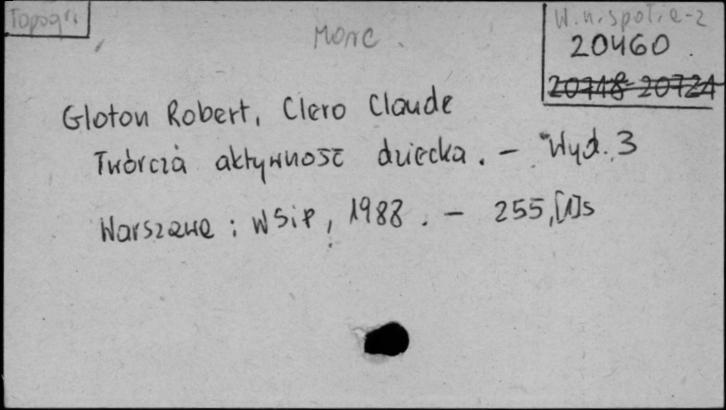 Topogr.
W.n.społ.e-2
Morc.
20460.
20718-20724
Gloton Robert, Clero Claude
Twórcza aktywność dziecka. - Wyd. 3
Warszawa : WSiP, 1988. - 255,[1]s